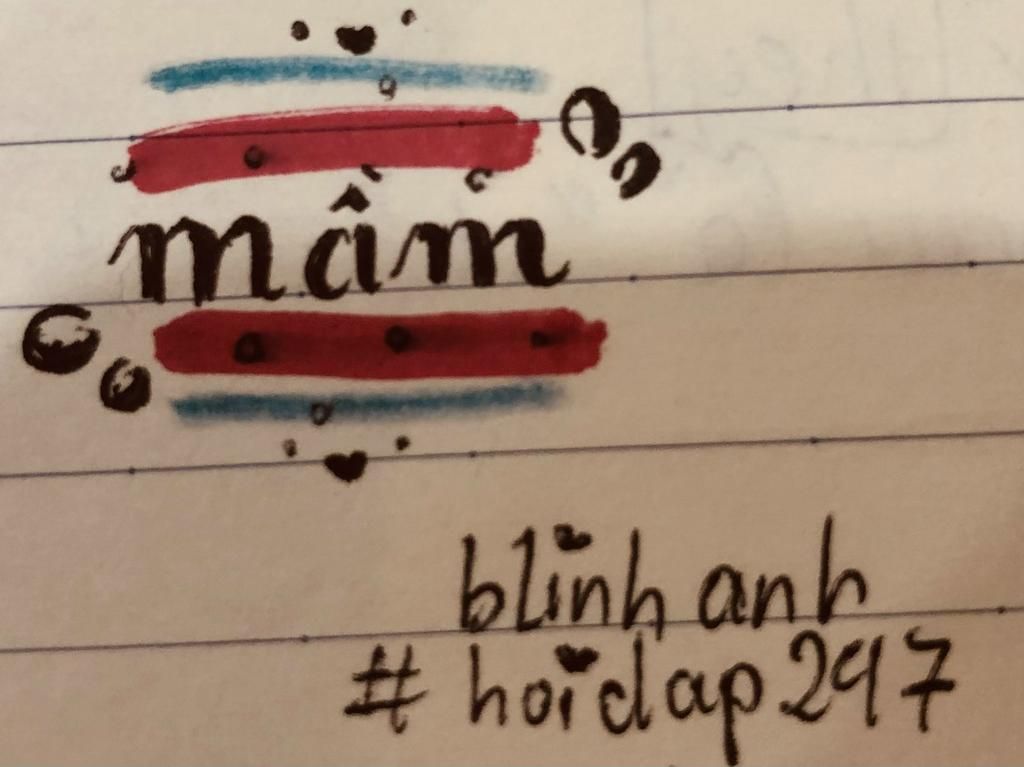 mầm
blinh anh
# hoidap247